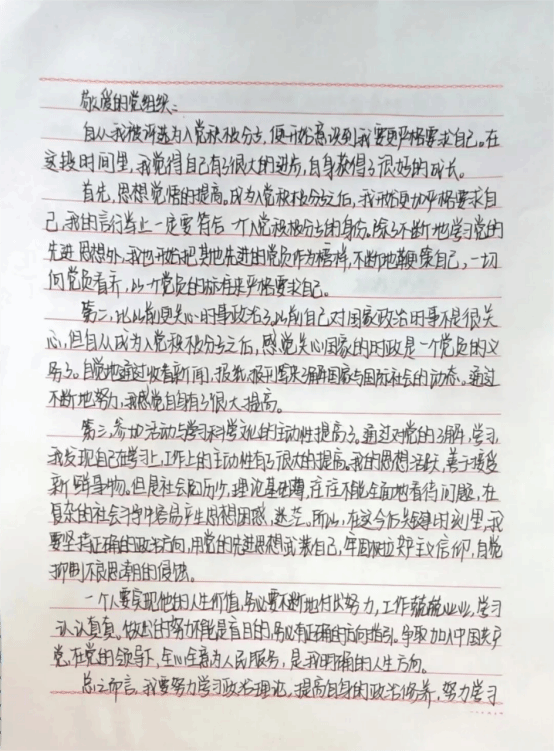 敬爱的党组织：
自从我被评选为入党积极分子，便开始意识到我要更严格要求自己。在
这段时间里，我觉得自己有了很大的进步，自身获得了很好的成长。
首先，思想觉悟的提高。成为入党积极分子后，我开始更加严格要求自
己，我的言行举止一定要符合一个入党积极分子的身份。除了不断地学习党的
先进思想外，我也开始把其他先进的党员作为榜样，不断地鞭策自己，一切
向党员看齐，以一个党员的标准来严格要求自己。
第二，比以前更关心时事政治了。以前自己对国家政治时事不是很关
心，但自从成为入党积极分子之后，感觉关心国家的时政是一个党员的义
务了。自觉地通过收看新闻，报纸报刊等来了解国家与国际社会的动态。通过
不断地努力，我感觉自身有了很大提高。
第三，参加活动与学习科学文化的主动性提高了。通过对党的了解，学习，
我发现自己在学习上，工作上的主动性有了很大的提高。我的思想活跃，善于接受
新鲜事物。但是社会阅历少，理论基础薄，往往不能全面地看待问题，在
复杂的社会习学中容易产生思想困惑，迷茫。所以，在这个后关键的时刻里，我
要坚持正确的政治方向，用党的先进思想武装自己，牢固树立共产主义信仰，自觉
抑制不良思潮的侵蚀。
一个人要实现他的人生价值，务必要不断地付出努力，工作兢兢业业，学习
认认真真。做出的努力不能是盲目的务必有正确的方向指引。争取加入中国共产
党，在党的领导下，全心全意为人民服务，是我明确的人生方向。
总之而言，我要努力学习政治理论，提高自身的政治修养，努力学习